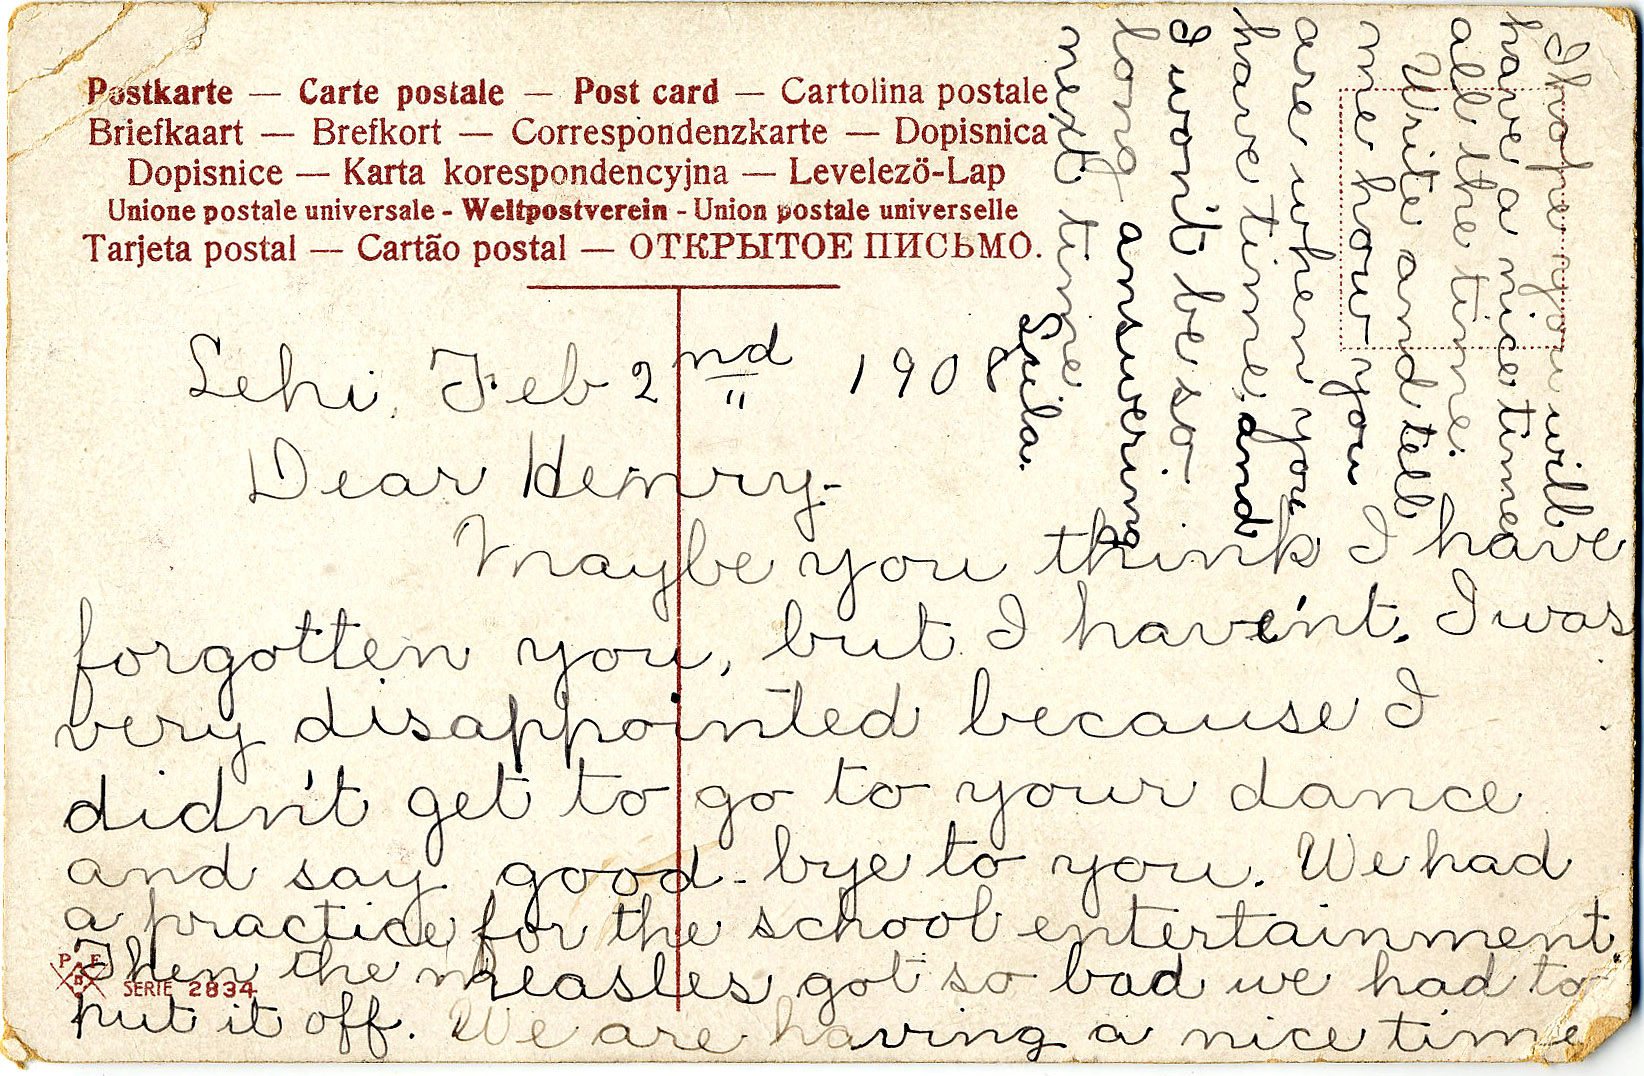 Postkarte — Carte postale — Post card — Cartolina postale
Briefkaart — Brefkort — Correspondenzkarte — Dopisnica
Dopisnice — Karta korespondencyjna — Levelező-Lap
Unione postale universale - Weltpostverein - Union postale universelle
Tarjeta postal — Cartão postal — ОТКРЫТОЕ ПИСЬМО.
Lehi, Feb 2nd 1908
Dear Henry-
Maybe you think I have
forgotten you, but I have'nt. I was
very disappointed because I
didn't get to go to your dance
and say good-bye to you. We had
a practice for the school entertainment.
Then the measles got so bad we had to
put it off. We are having a nice time
I hope you will
have a nice time
all the time.
Write and tell
me how you
are when you
have time, and
I won't be so
long answering
next time
Luila.
P F B
SERIE 2834